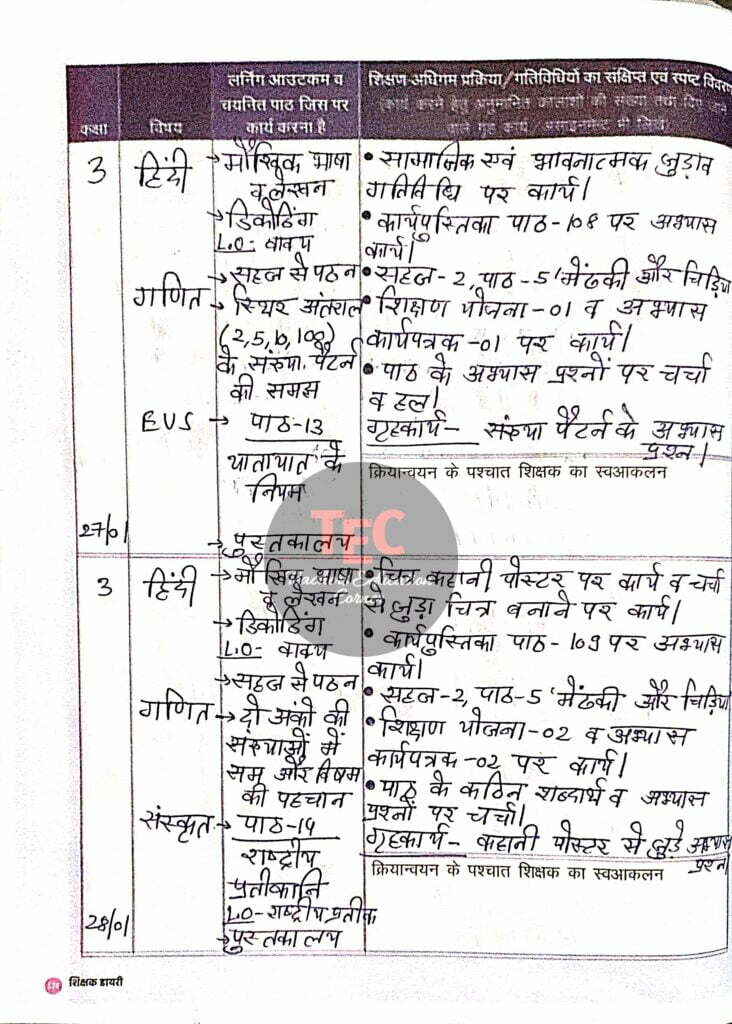 कक्षा
विषय
लर्निंग आउटकम व
चयनित पाठ जिस पर
कार्य करना है
शिक्षण-अधिगम प्रक्रिया/गतिविधियों का संक्षिप्त एवं स्पष्ट विवरण
(कार्य करने हेतु अनुमानित कालांशों की संख्या तथा दिए जाने
वाले गृह कार्य
भी लिखें)
3
27/01
हिंदी
गणित
EVS
→ मौखिक भाषा
व लेखन
→ डिकोडिंग
L.O- वाक्य
→ सहज से पठन
→ स्थिर अंतराल
(2,5,10,108)
के संख्या पैटर्न
की समझ
→ पाठ-13
यातायात के
नियम
→ पुस्तकालय
• सामाजिक एवं भावनात्मक जुड़ाव
गतिविधि पर कार्य।
• कार्यपुस्तिका पाठ-108 पर अभ्यास
कार्य।
• सहज-2, पाठ-5 'मेंढकी और चिड़िया
• शिक्षण योजना-01 व अभ्यास
कार्यपत्रक-01 पर कार्य।
• पाठ के अभ्यास प्रश्नों पर चर्चा
व हल।
गृहकार्य- संख्या पैटर्न के अभ्यास
प्रश्न।
क्रियान्वयन के पश्चात शिक्षक का स्वआकलन
TEC
Teachers Education
Corner
3
28/01
हिंदी
गणित
संस्कृत
→ मौखिक भाषा
व लेखन
→ डिकोडिंग
L.O- वाक्य
→ सहज से पठन
→ दो अंको की
संख्याओं में
सम और विषम
की पहचान
→ पाठ-14
राष्ट्रीय
प्रतीकानि
L.O- राष्ट्रीय प्रतीक
→ पुस्तकालय
कहानी पोस्टर पर कार्य व चर्चा
से जुड़ा चित्र बनाने पर कार्य।
• कार्यपुस्तिका पाठ-109 पर अभ्यास
कार्य।
• सहज-2, पाठ-5 'मेंढकी और चिड़िया
• शिक्षण योजना-02 व अभ्यास
कार्यपत्रक-02 पर कार्य।
• पाठ के कठिन शब्दार्थ व अभ्यास
प्रश्नों पर चर्चा।
गृहकार्य- कहानी पोस्टर से जुड़े अभ्यास
प्रश्न
क्रियान्वयन के पश्चात शिक्षक का स्वआकलन
शिक्षक डायरी